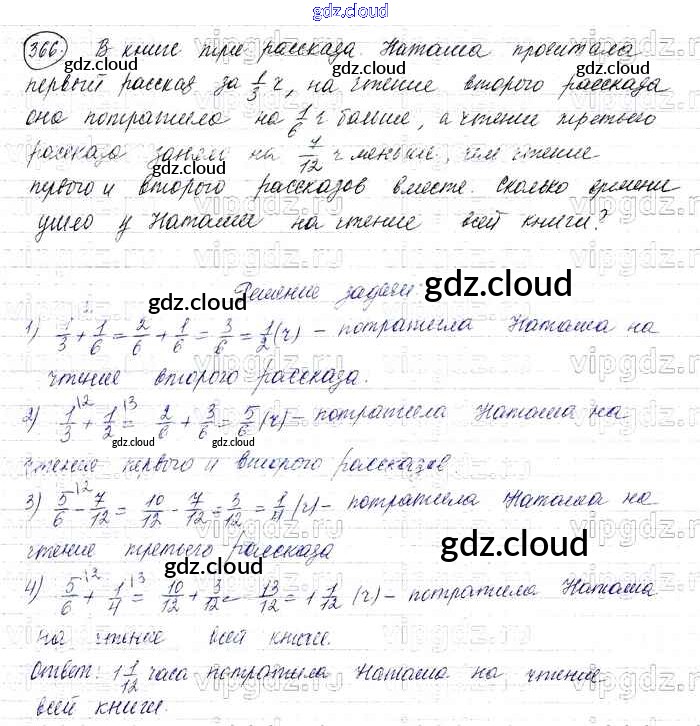 gdz.cloud
366. В книге три рассказа. Наташа прочитала
первый рассказ за 1/3 ч, на чтение второго рассказа
она потратила на 1/6 ч больше, а чтение третьего
рассказа заняло на 7/12 ч меньше, чем чтение
первого и второго рассказов вместе. Сколько времени
ушло у Наташи на чтение всей книги?
Решение задачи:
1) 1/3 + 1/6 = 2/6 + 1/6 = 3/6 = 1/2 (ч) – потратила Наташа на
чтение второго рассказа.
2) 1/3 + 1/2 = 2/6 + 3/6 = 5/6 (ч) – потратила Наташа на
чтение первого и второго рассказов
3) 5/6 - 7/12 = 10/12 - 7/12 = 3/12 = 1/4 (ч) – потратила Наташа на
чтение третьего рассказа
4) 5/6 + 1/4 = 10/12 + 3/12 = 13/12 = 1 1/12 (ч) – потратила Наташа
на чтение всей книги.
Ответ: 1 1/12 часа потратила Наташа на чтение
всей книги.